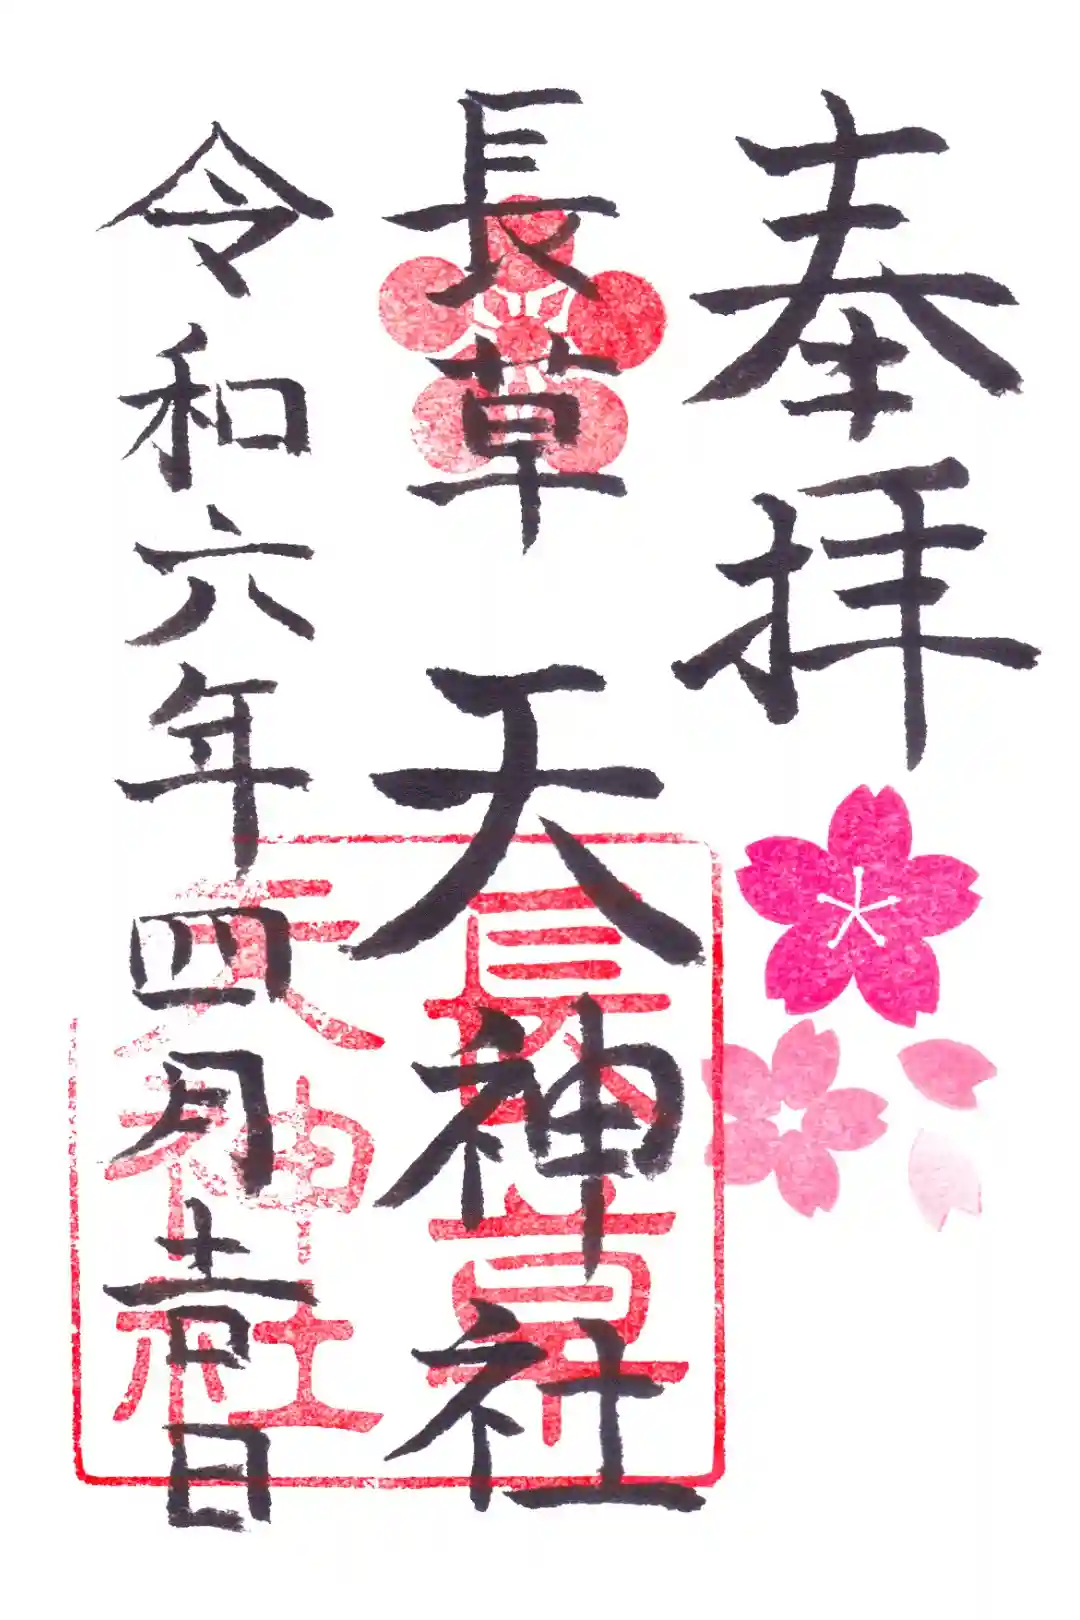 奉拝
長草天神社
令和六年四月吉日
長草
天神社